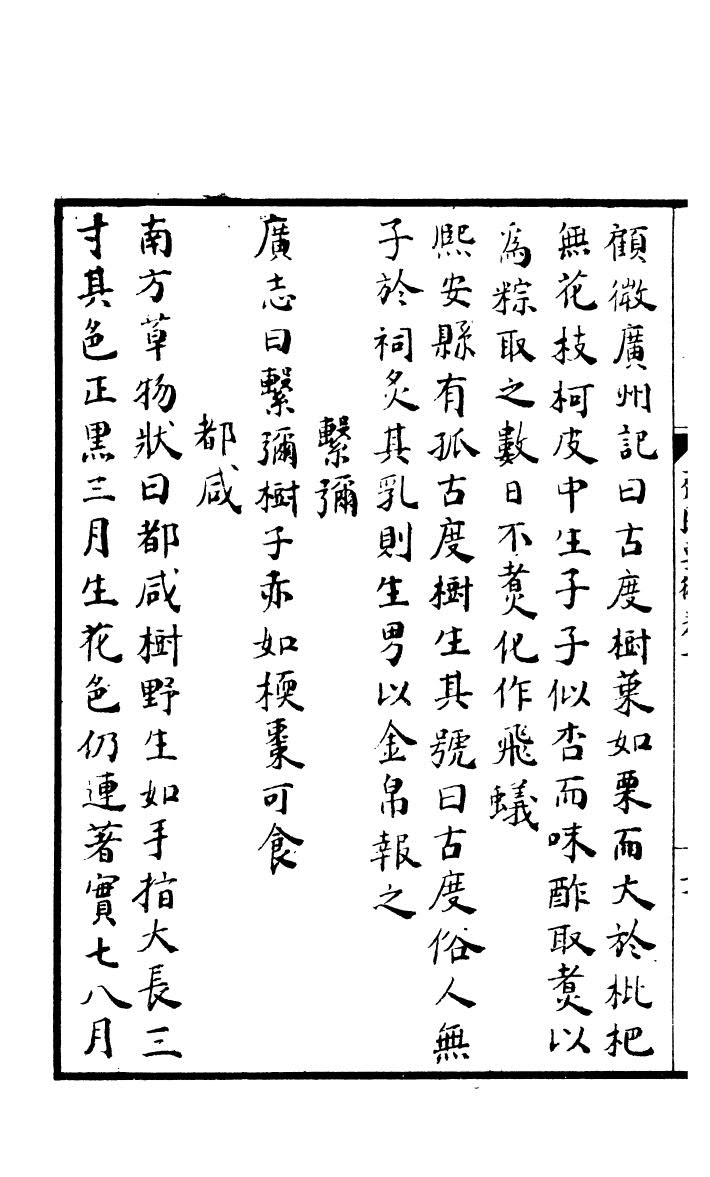 顧微廣州記曰古度樹葉如栗而大於枇杷
無花枝柯皮中生子子似杏而味酢取煑以
為粽取之數日不煑化作飛蟻
熈安縣有孤古度樹生其號曰古度俗人無
子於祠炙其乳則生男以金帛報之
繫彌
廣志曰繫彌樹子赤如㮕棗可食
都咸
南方草物狀曰都咸樹野生如手指大長三
寸其色正黒三月生花色仍連著實七八月